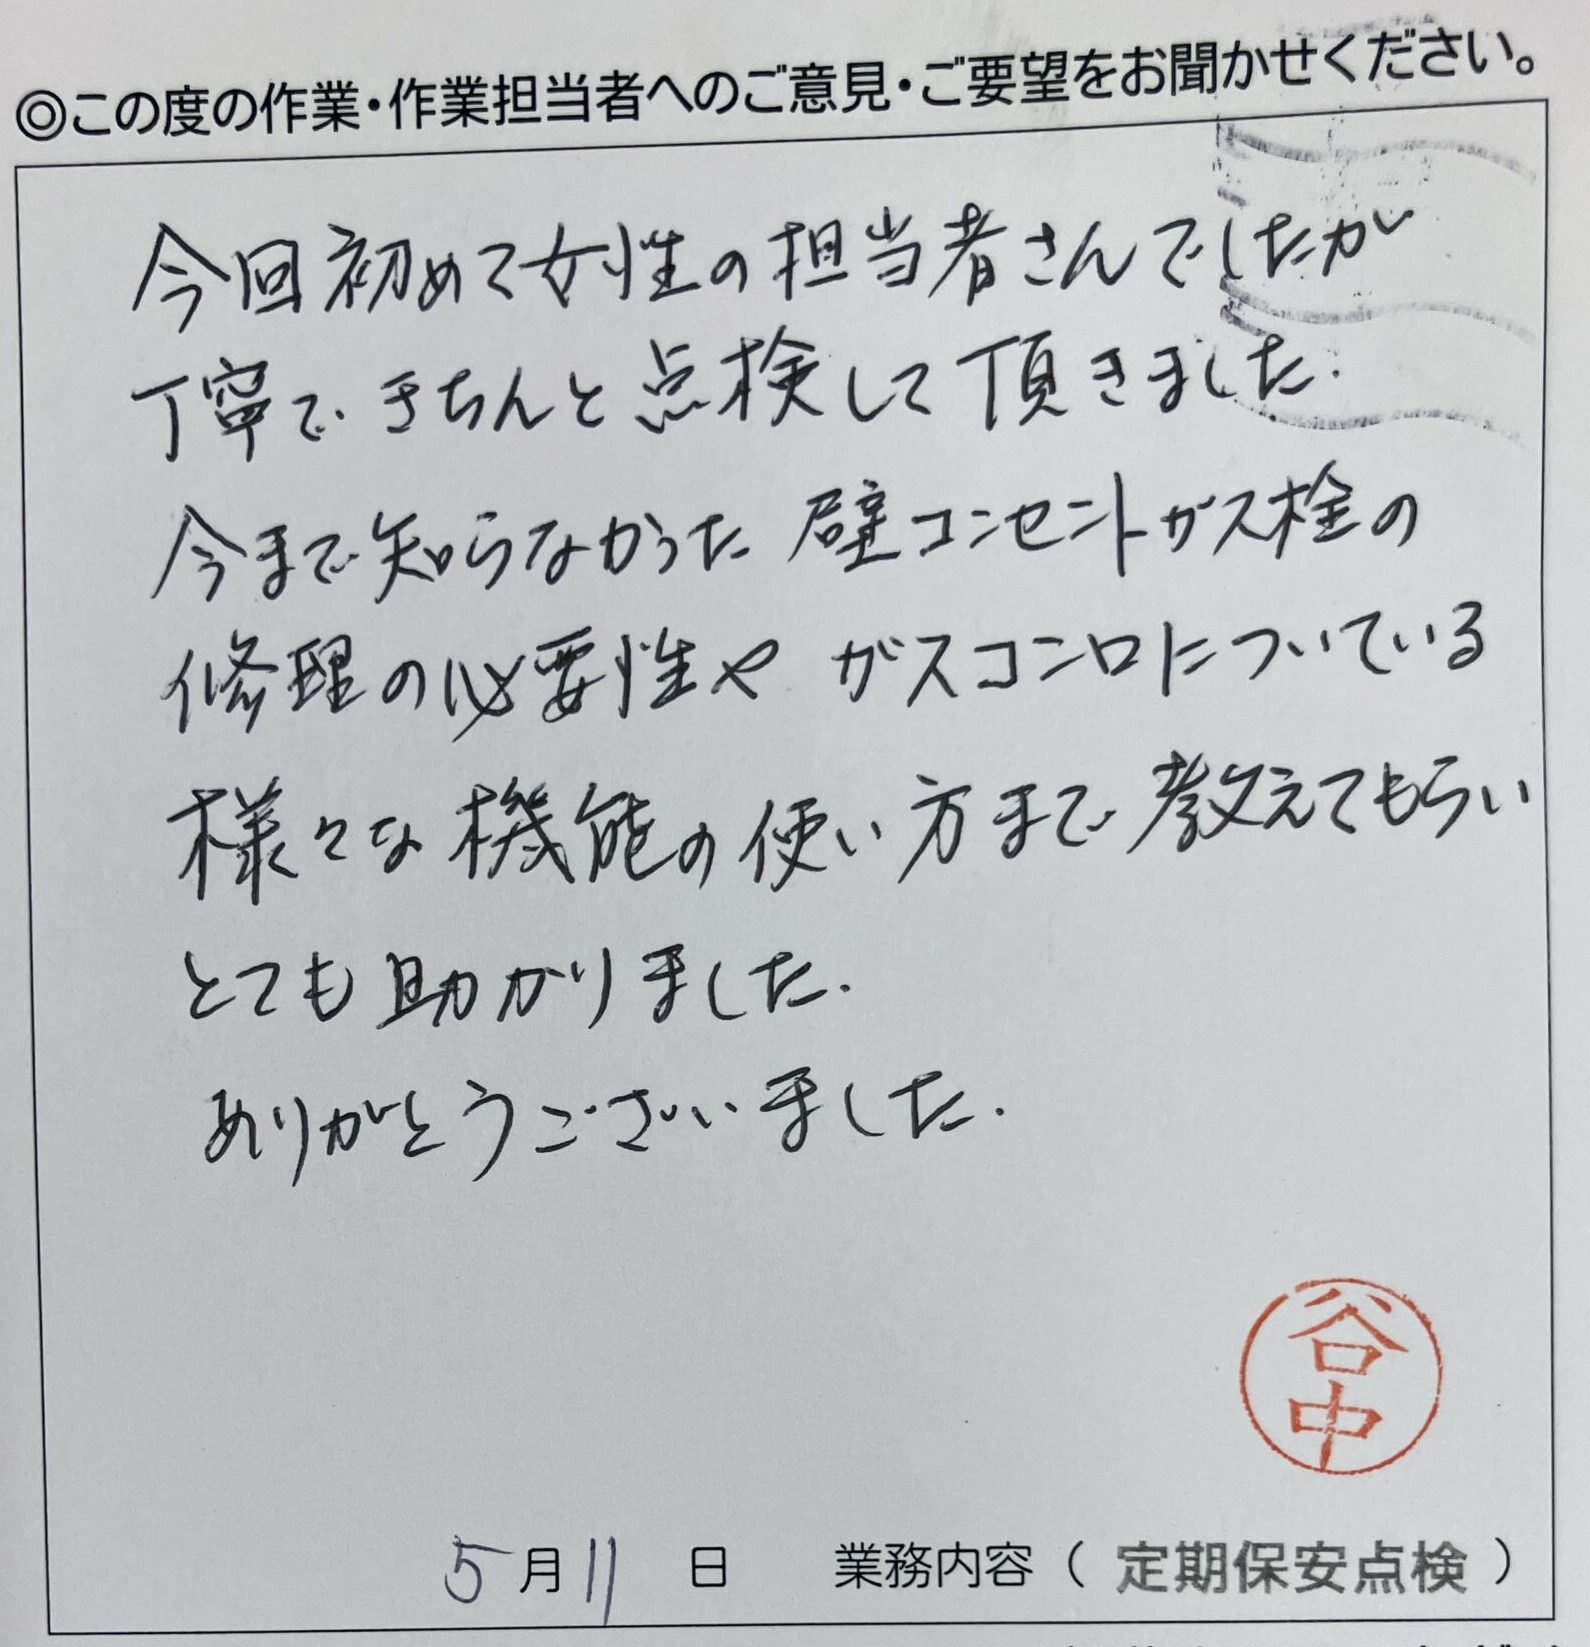 ◎この度の作業・作業担当者へのご意見・ご要望をお聞かせください。
今回初めて女性の担当者さんでしたが
丁寧できちんと点検して頂きました.
今まで知らなかった壁コンセントガス栓の
修理の必要性やガスコンロについている
様々な機能の使い方まで教えてもらい
とても助かりました.
ありがとうございました.
谷中
5月11日 業務内容（定期保安点検）